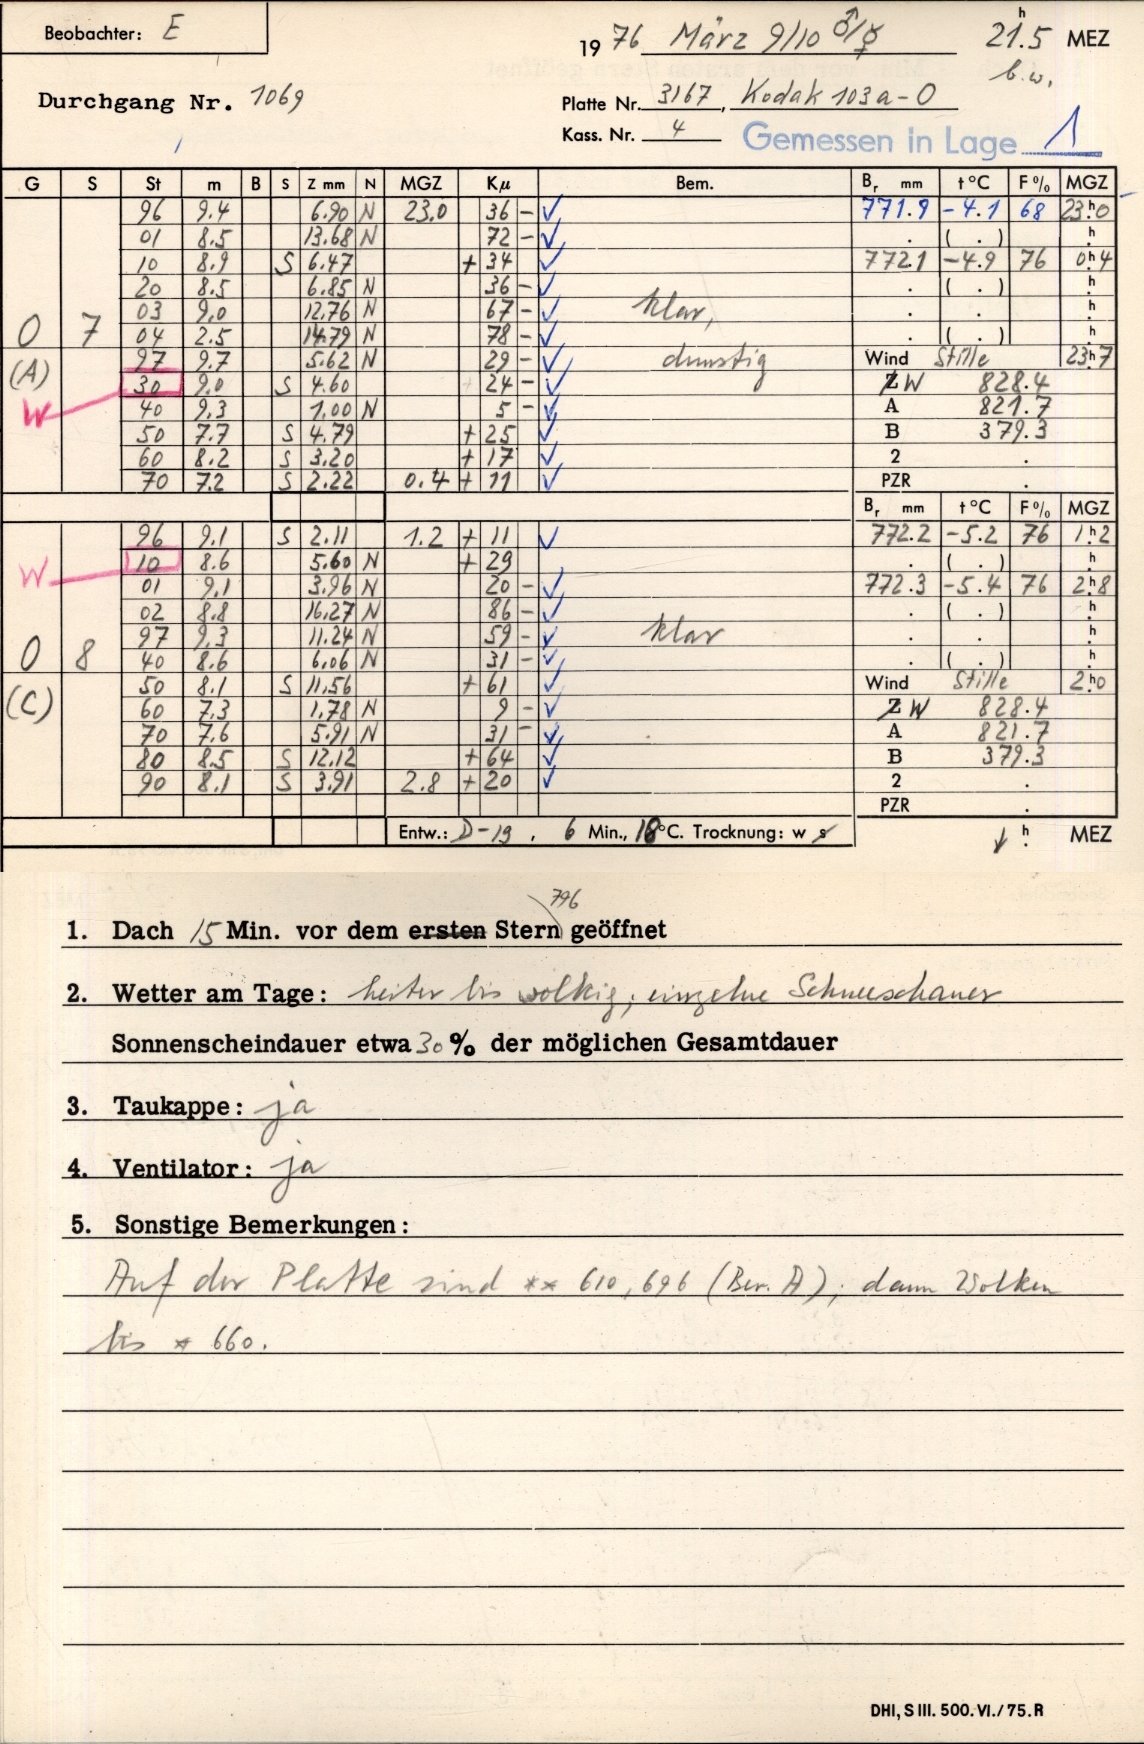 Beobachter: E
1976 März 9/10 ♂/☿ 21h.5 MEZ
b.w.
Durchgang Nr. 1069
Platte Nr. 3167, Kodak 103a-O
Kass. Nr. 4 Gemessen in Lage 1
G S St m B S Z mm N MGZ Kμ Bem. Br mm t°C F% MGZ
96 9.4 6.90 N 23.0 36 - ✓ 771.9 -4.1 68 23h0
01 8.5 13.68 N 72 - ✓ . ( . ) h
10 8.9 S 6.47 + 34 ✓ 772.1 -4.9 76 0h4
20 8.5 6.85 N 36 - ✓ . ( . ) h
03 9.0 12.76 N 67 - ✓ klar, . . h
0 7 04 2.5 14.79 N 78 - ✓ . ( . ) h
(A) 97 9.7 5.62 N 29 - ✓ dunstig Wind Stille 23h7
30 9.0 S 4.60 + 24 - ✓ Z W 828.4
W 40 9.3 1.00 N 5 - ✓ A 821.7
50 7.7 S 4.79 + 25 ✓ B 379.3
60 8.2 S 3.20 + 17 ✓ 2 .
70 7.2 S 2.22 0.4 + 11 ✓ PZR .
Br mm t°C F% MGZ
96 9.1 S 2.11 1.2 + 11 ✓ 772.2 -5.2 76 1h2
W 10 8.6 5.60 N + 29 . ( . ) h
01 9.1 3.96 N 20 - ✓ 772.3 -5.4 76 2h8
02 8.8 16.27 N 86 - ✓ . ( . ) h
97 9.3 11.24 N 59 - ✓ klar . . h
0 8 40 8.6 6.06 N 31 - ✓ . ( . ) h
(C) 50 8.1 S 11.56 + 61 ✓ Wind Stille 2h0
60 7.3 1.78 N 9 - ✓ Z W 828.4
70 7.6 5.91 N 31 - ✓ A 821.7
80 8.5 S 12.12 + 64 ✓ B 379.3
90 8.1 S 3.91 2.8 + 20 ✓ 2 .
PZR .
Entw.: D-19, 6 Min., 18°C. Trocknung: w s ↓ h MEZ
796
1. Dach 15 Min. vor dem ersten Stern geöffnet
2. Wetter am Tage: heiter bis wolkig; einzelne Schneeschauer
Sonnenscheindauer etwa 30 % der möglichen Gesamtdauer
3. Taukappe: ja
4. Ventilator: ja
5. Sonstige Bemerkungen:
Auf der Platte sind ** 610, 696 (Ber. A); dann Wolken
bis * 660.
DHI, S III. 500. VI./75. R